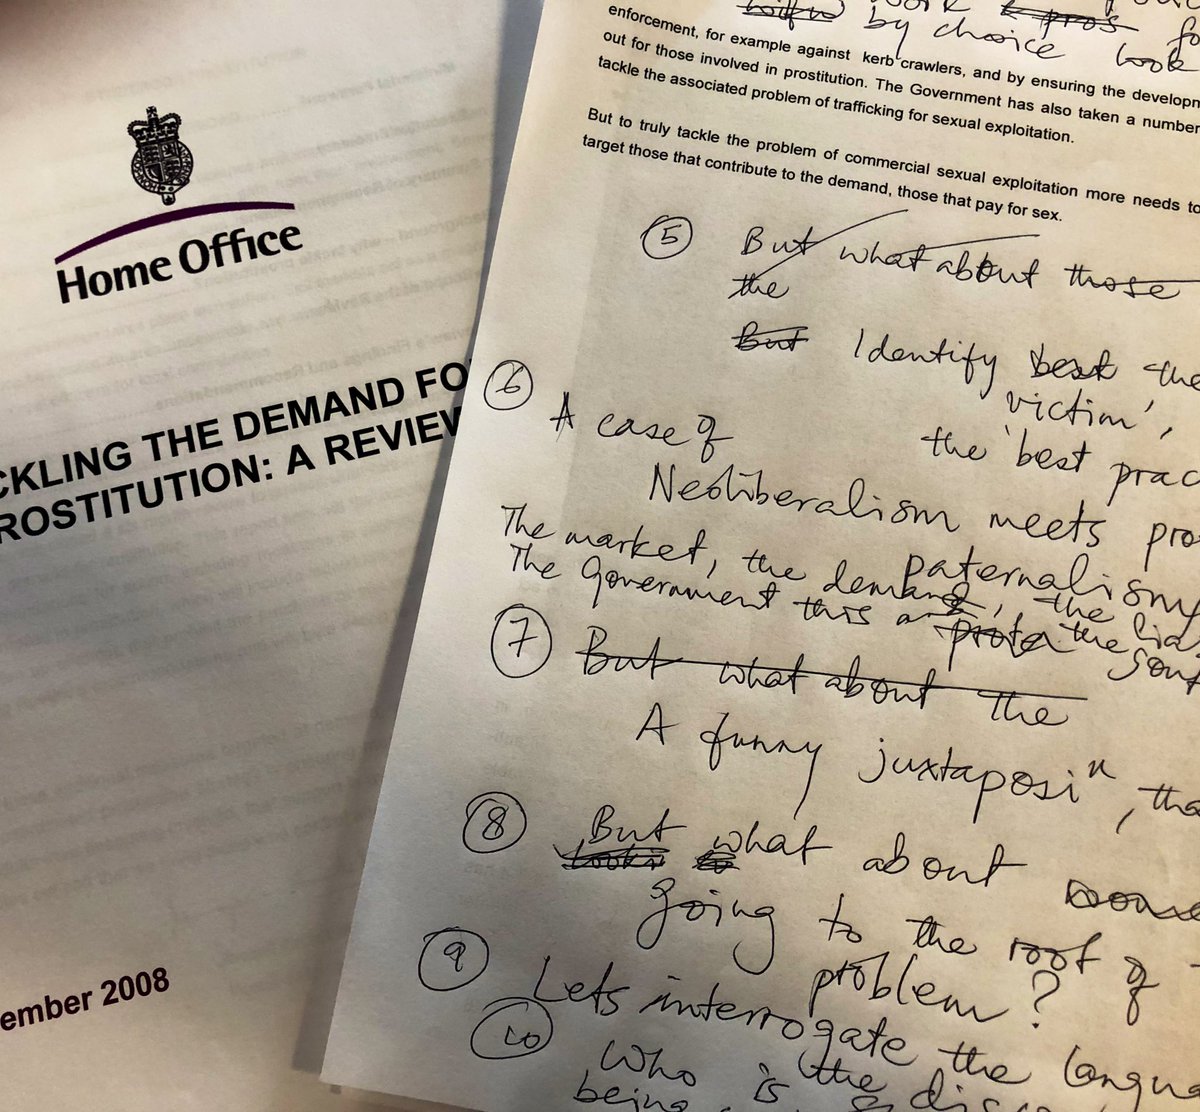 Home Office
CKLING THE DEMAND FO
ROSTITUTION: A REVIEW
ember 2008
by choice look
enforcement, for example against kerb crawlers, and by ensuring the developm
out for those involved in prostitution. The Government has also taken a number
tackle the associated problem of trafficking for sexual exploitation.
But to truly tackle the problem of commercial sexual exploitation more needs to
target those that contribute to the demand, those that pay for sex.
5 But what about those
the
But Identify best the
victim',
6 A case of the 'best prac
Neoliberalism meets pro
paternalism
The market, the demand, the
The Government this a the
7 But what about the
A funny juxtaposiⁿ, tha
8 But what about
going to the root of
problem?
9 Lets interrogate the langua
10 Who is the disc
being